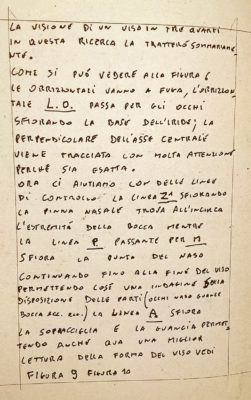 LA VISIONE DI UN VISO IN TRE QUARTI
IN QUESTA RICERCA LA TRATTERÒ SOMMARIAME
NTE.
COME SI PUÓ VEDERE ALLA FIGURA 6
LE ORRIZONTALI VANNO A FUGA, L'ORRIZON-
TALE L.O. PASSA PER GLI OCCHI
SFIORANDO LA BASE DELL'IRIDE; LA
PERPENDICOLARE DELL'ASSE CENTRALE
VIENE TRACCIATA CON MOLTA ATTENZIONE
PERCHÈ SIA ESATTA.
ORA CI AIUTIAMO CON DELLE LINEE
DI CONTROLLO LA LINEA SFIORANDO
LA PINNA NASALE TROVA ALL'INCIRCA
L'ESTREMITÀ DELLA BOCCA MENTRE
LA LINEA P PASSANTE PER M
SFIORA LA PUNTA DEL NASO
CONTINUANDO FINO ALLA FINE DEL VISO
PERMETTENDO COSÌ UNA INDAGINE SULLA
DISPOSIZIONE DELLE PARTI (OCCHI NASO GUANCE
BOCCA ECC. ECC.) LA LINEA A SFIORA
LA SOPRACCIGLIA E LA GUANCIA PERMET
TENDO ANCHE QUA UNA MIGLIOR
LETTURA DELLA FORMA DEL VISO VEDI
FIGURA 9 FIGURA 10